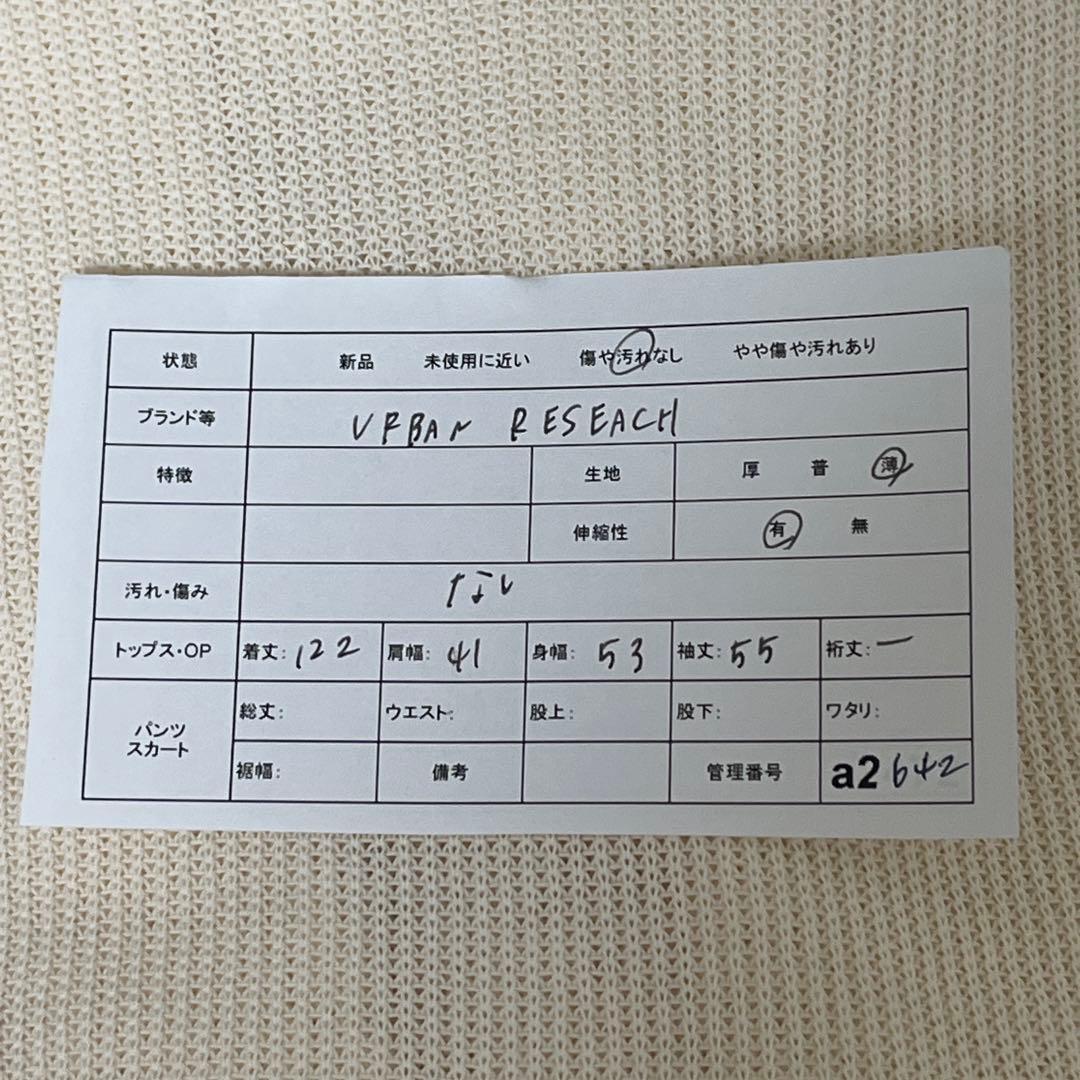 状態 新品 未使用に近い 傷や汚れなし やや傷や汚れあり
ブランド等 URBAN RESEACH
特徴 生地 厚 普 薄
伸縮性 有 無
汚れ・傷み なし
トップス・OP 着丈: 122 肩幅: 41 身幅: 53 袖丈: 55 裄丈: ー
パンツ
スカート
総丈: ウエスト: 股上: 股下: ワタリ:
裾幅: 備考 管理番号 a2642